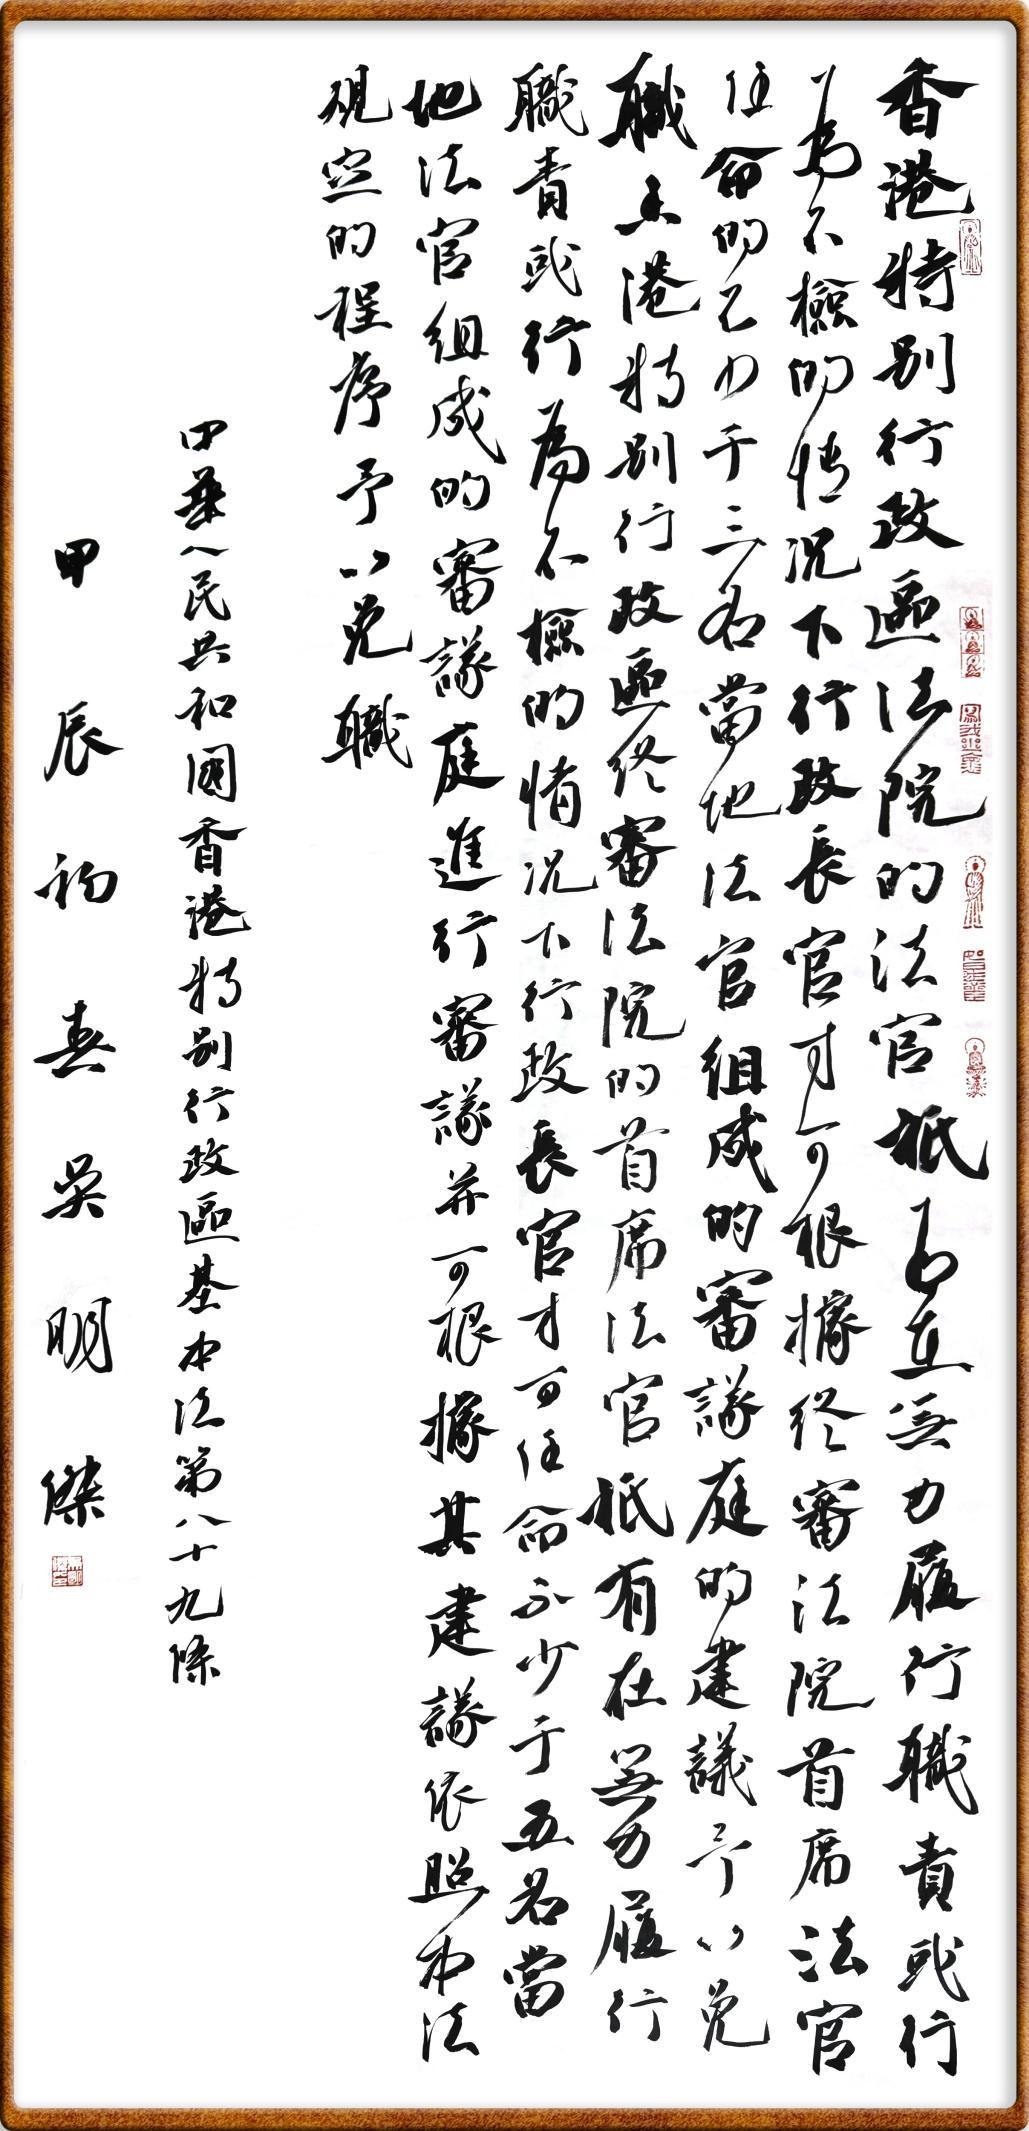 香港特别行政區法院的法官祇有在無力履行職責或行
為不檢的情況下行政長官才可根據終審法院首席法官
任命的不少于三名當地法官組成的審議庭的建議予以免
職香港特别行政區終審法院的首席法官祇有在無力履行
職責或行為不檢的情況下行政長官才可任命不少于五名當
地法官組成的審議庭進行審議并可根據其建議依照本法
規定的程序予以免職
中華人民共和國香港特别行政區基本法第八十九條
甲辰初春吴明傑